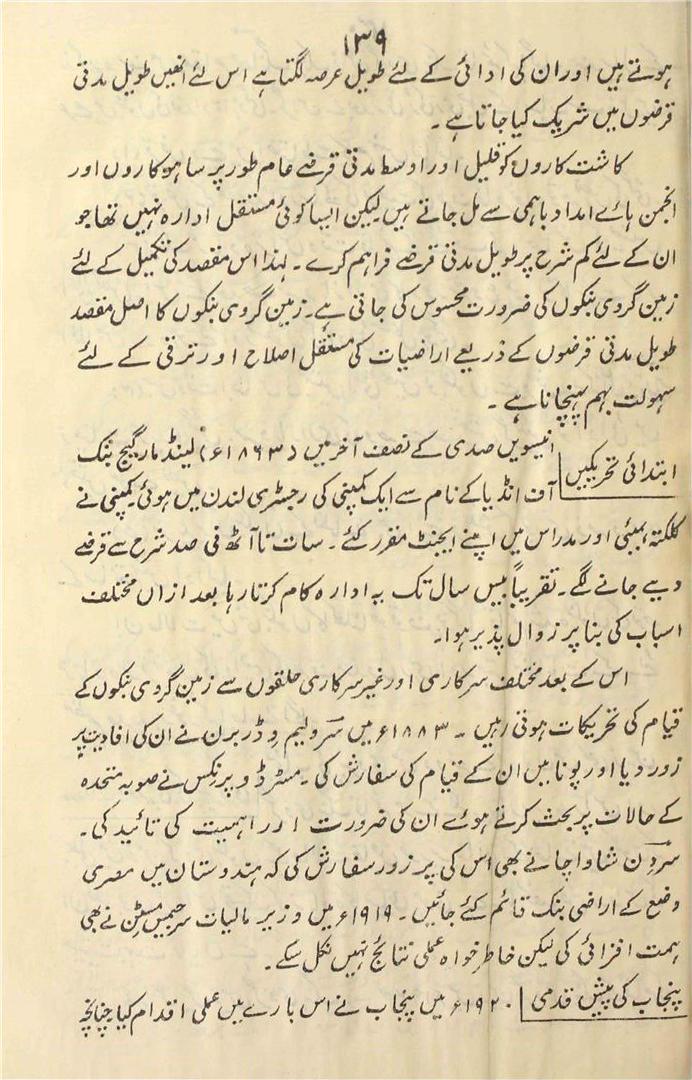 ۱۳۹
ہوتے ہیں اور ان کی ادائی کے لئے طویل عرصہ لگتا ہے اس لئے انھیں طویل مدتی
قرضوں میں شریک کیا جاتا ہے ۔
کاشت کاروں کو قلیل اور اوسط مدتی قرضے عام طور پر ساہوکاروں اور
انجمن ہائے امداد باہمی سے مل جاتے ہیں لیکن ایسا کوئی مستقل ادارہ نہیں تھا جو
ان کے لئے کم شرح پر طویل مدتی قرضے فراہم کرے ۔ لہذا اس مقصد کی تکمیل کے لئے
زمین گروی بنکوں کی ضرورت محسوس کی جاتی ہے۔ زمین گروی بنکوں کا اصل مقصد
طویل مدتی قرضوں کے ذریعے اراضیات کی مستقل اصلاح اور ترقی کے لئے
سہولت بہم پہنچانا ہے ۔
ابتدائی تحریکیں انیسویں صدی کے نصف آخر میں (۱۸۶۳ء) لینڈ مارگیج بنک
آف انڈیا کے نام سے ایک کمپنی کی رجسٹری لندن میں ہوئی۔ کمپنی نے
کلکتہ بمبئی اور مدراس میں اپنے ایجنٹ مقرر کئے ۔ سات تا آٹھ فی صد شرح سے قرضے
دیے جانے لگے۔ تقریباً بیس سال تک یہ ادارہ کام کرتا رہا بعد ازاں مختلف
اسباب کی بنا پر زوال پذیر ہوا۔
اس کے بعد مختلف سرکاری اور غیر سرکاری حلقوں سے زمین گروی بنکوں کے
قیام کی تحریکات ہوتی رہیں ۔ ۱۸۸۳ء میں سر ولیم وڈربرن نے ان کی افادیت پر
زور دیا اور پونا میں ان کے قیام کی سفارش کی ۔ مسٹر ڈوپرنکس نے صوبہ متحدہ
کے حالات پر بحث کرتے ہوئے ان کی ضرورت اور اہمیت کی تائید کی ۔
سر ڈن شاواچا نے بھی اس کی پر زور سفارش کی کہ ہندوستان میں مصری
وضع کے اراضی بنک قائم کئے جائیں ۔ ۱۹۱۹ء میں وزیر مالیات سر جیمس مسٹن نے بھی
ہمت افزائی کی لیکن خاطر خواہ عملی نتائج نہیں نکل سکے ۔
پنجاب کی پیش قدمی ۱۹۲۰ء میں پنجاب نے اس بارے میں عملی اقدام کیا چنانچہ